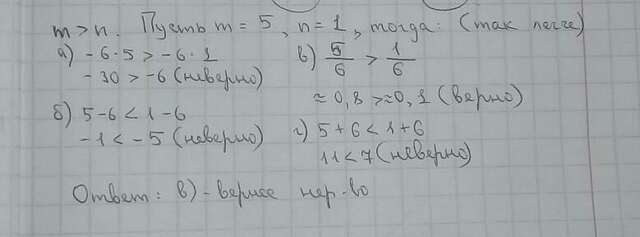 m > n. Пусть m = 5, n = 1, тогда: (так легче)
а) -6·5 > -6·1
-30 > -6 (неверно)
б) 5-6 < 1-6
-1 < -5 (неверно)
в) 5/6 > 1/6
≈ 0,8 > ≈ 0,1 (верно)
г) 5+6 < 1+6
11 < 7 (неверно)
Ответ: в) - верное нер-во